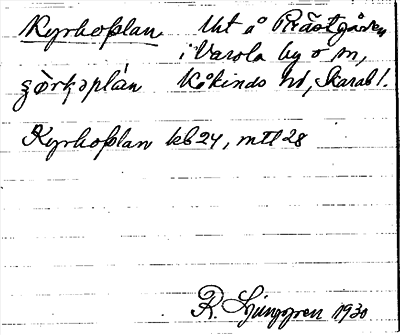 Kyrkoplan Äht å Prästgården
i Varola by o sn,
Kåkinds hd, Skarab l.
Kyrkoplan kb 24, mtl 28
R. Ljunggren 1930